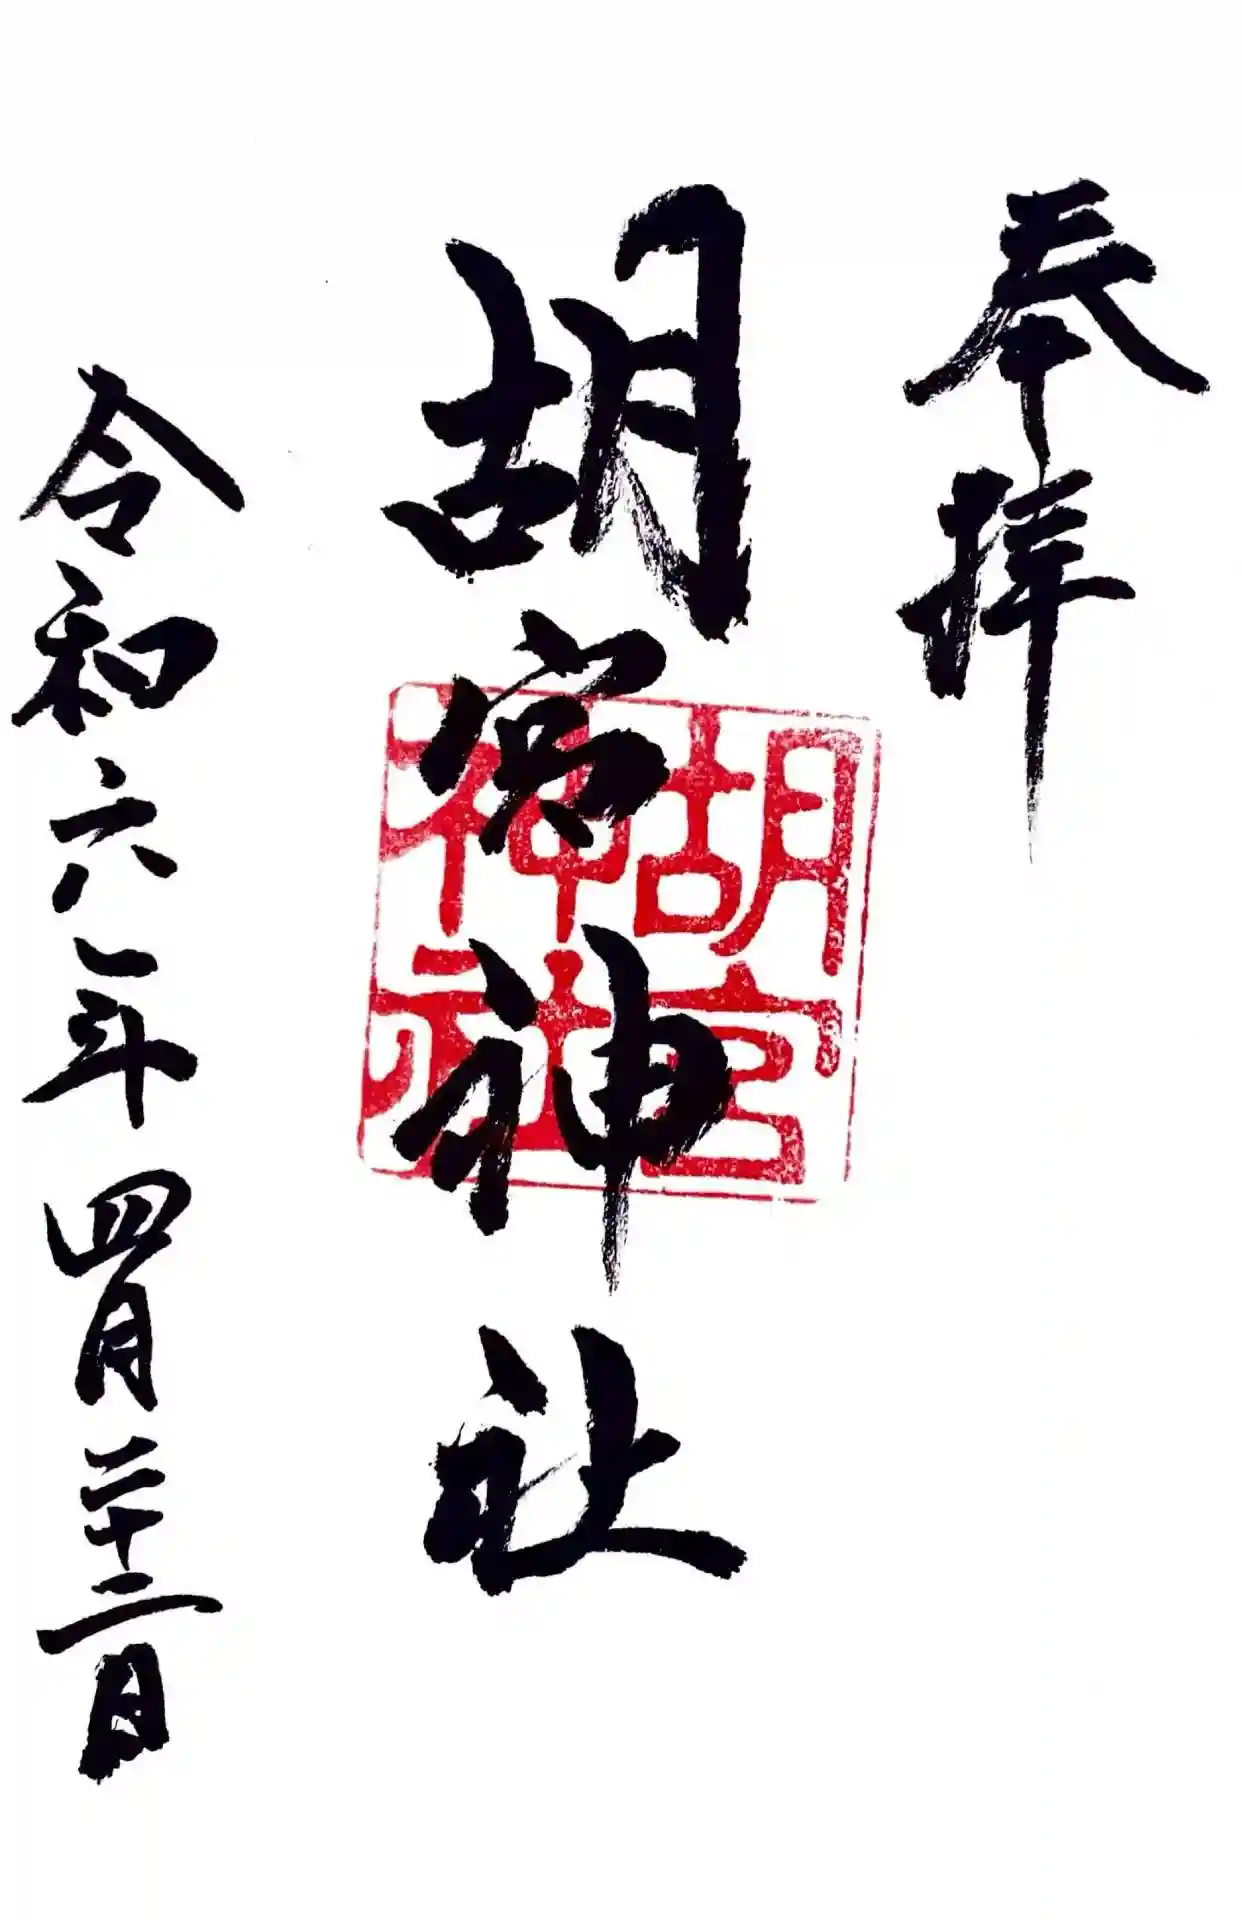 奉拝
胡宮神社
胡宮神社
令和六年四月二十二日